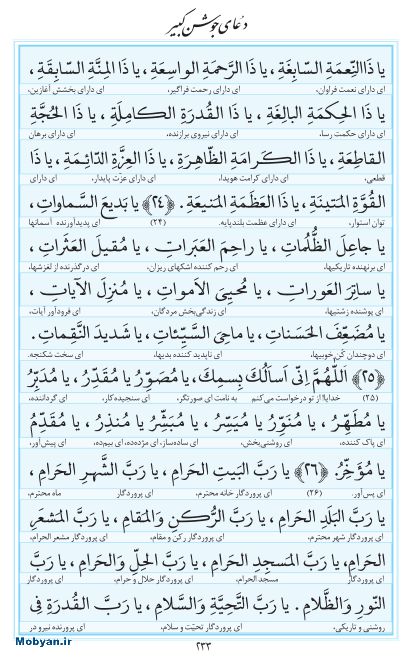 دعای جوشن کبیر
یا ذَاالنِّعمَةِ السّابِغَةِ، یا ذَا الرَّحمَةِ الواسِعَةِ، یا ذَا المِنَّةِ السّابِقَةِ،
ای دارای نعمت فراوان، ای دارای رحمت فراگیر، ای دارای بخشش آغازین،
یا ذَا الحِکمَةِ البالِغَةِ، یا ذَا القُدرَةِ الکامِلَةِ، یا ذَا الحُجَّةِ
ای دارای حکمت رسا، ای دارای نیروی برازنده، ای دارای برهان
القاطِعَةِ، یا ذَا الکَرامَةِ الظّاهِرَةِ، یا ذَا العِزَّةِ الدّائِمَةِ، یا ذَا
قطعی، ای دارای کرامت هویدا، ای دارای عزت پایدار، ای دارای
القُوَّةِ المَتینَةِ، یا ذَا العَظَمَةِ المَنیعَةِ. ﴿۲۴﴾ یا بَدیعَ السَّماواتِ،
توان استوار، ای دارای عظمت بلندپایه. (۲۴) ای پدیدآورنده آسمانها
یا جاعِلَ الظُّلُماتِ، یا راحِمَ العَبَراتِ، یا مُقیلَ العَثَراتِ،
ای برنهنده تاریکیها، ای رحم کننده اشکهای ریزان، ای درگذرنده از لغزشها،
یا ساتِرَ العَوراتِ، یا مُحیِیَ الاَمواتِ، یا مُنزِلَ الآیاتِ،
ای پوشنده زشتیها، ای زندگی‌بخش مردگان، ای فرودآور آیات،
یا مُضَعِّفَ الحَسَناتِ، یا ماحِیَ السَّیِّئاتِ، یا شَدیدَ النَّقِماتِ.
ای دوچندان کن خوبیها، ای ناپدید کننده بدیها، ای سخت شکنجه.
﴿۲۵﴾ اَللّٰهُمَّ اِنّی اَسأَلُکَ بِاسمِکَ، یا مُصَوِّرُ یا مُقَدِّرُ، یا مُدَبِّرُ
(۲۵) خدایا! از تو درخواست می‌کنم به نامت ای صورتگر، ای سنجیده‌کار، ای گرداننده،
یا مُطَهِّرُ، یا مُنَوِّرُ یا مُیَسِّرُ، یا مُبَشِّرُ یا مُنذِرُ، یا مُقَدِّمُ
ای پاک کننده، ای روشنی‌بخش، ای ساده‌ساز، ای مژده‌ده، ای بیم‌ده، ای پیش‌آور،
یا مُؤَخِّرُ. ﴿۲۶﴾ یا رَبَّ البَیتِ الحَرامِ، یا رَبَّ الشَّهرِ الحَرامِ،
ای پس‌آور. (۲۶) ای پروردگار خانه محترم، ای پروردگار ماه محترم،
یا رَبَّ البَلَدِ الحَرامِ، یا رَبَّ الرُّکنِ وَالمَقامِ، یا رَبَّ المَشعَرِ
ای پروردگار شهر محترم، ای پروردگار رکن و مقام، ای پروردگار مشعر الحرام،
الحَرامِ، یا رَبَّ المَسجِدِ الحَرامِ، یا رَبَّ الحِلِّ وَالحَرامِ، یا رَبَّ
ای پروردگار مسجد الحرام، ای پروردگار حلال و حرام، ای پروردگار
النّورِ وَالظَّلامِ. یا رَبَّ التَّحِیَّةِ وَالسَّلامِ، یا رَبَّ القُدرَةِ فِی
روشنی و تاریکی، ای پروردگار تحیّت و سلام، ای پرورنده نیرو در
Mobyan.ir
۲۳۳